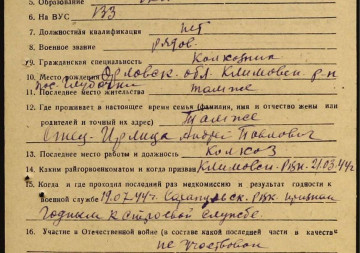 5. Образование
6. На ВУС 133
7. Должностная квалификация нет
8. Военное звание рядов.
9. Гражданская специальность Колхозник
10. Место рождения Орловск. обл. Климовск. р-н
пос.
11. Последнее место жительства там же
12. Где проживает в настоящее время семья (фамилия, имя и отчество жены или
родителей и точный их адрес) Там же
отец - Андрей Павлович
13. Последнее место работы и должность Колхоз
14. Каким райгорвоенкоматом и когда призван Климовск. РВК - 21.03.44г
15. Когда и где проходил последний раз медкомиссию и результат годности к
военной службе 19.07.44г. Сарапульск. РВК признан
Годным к строевой службе
16. Участие в Отечественной войне (в составе какой последней части и качестве
не участвовал